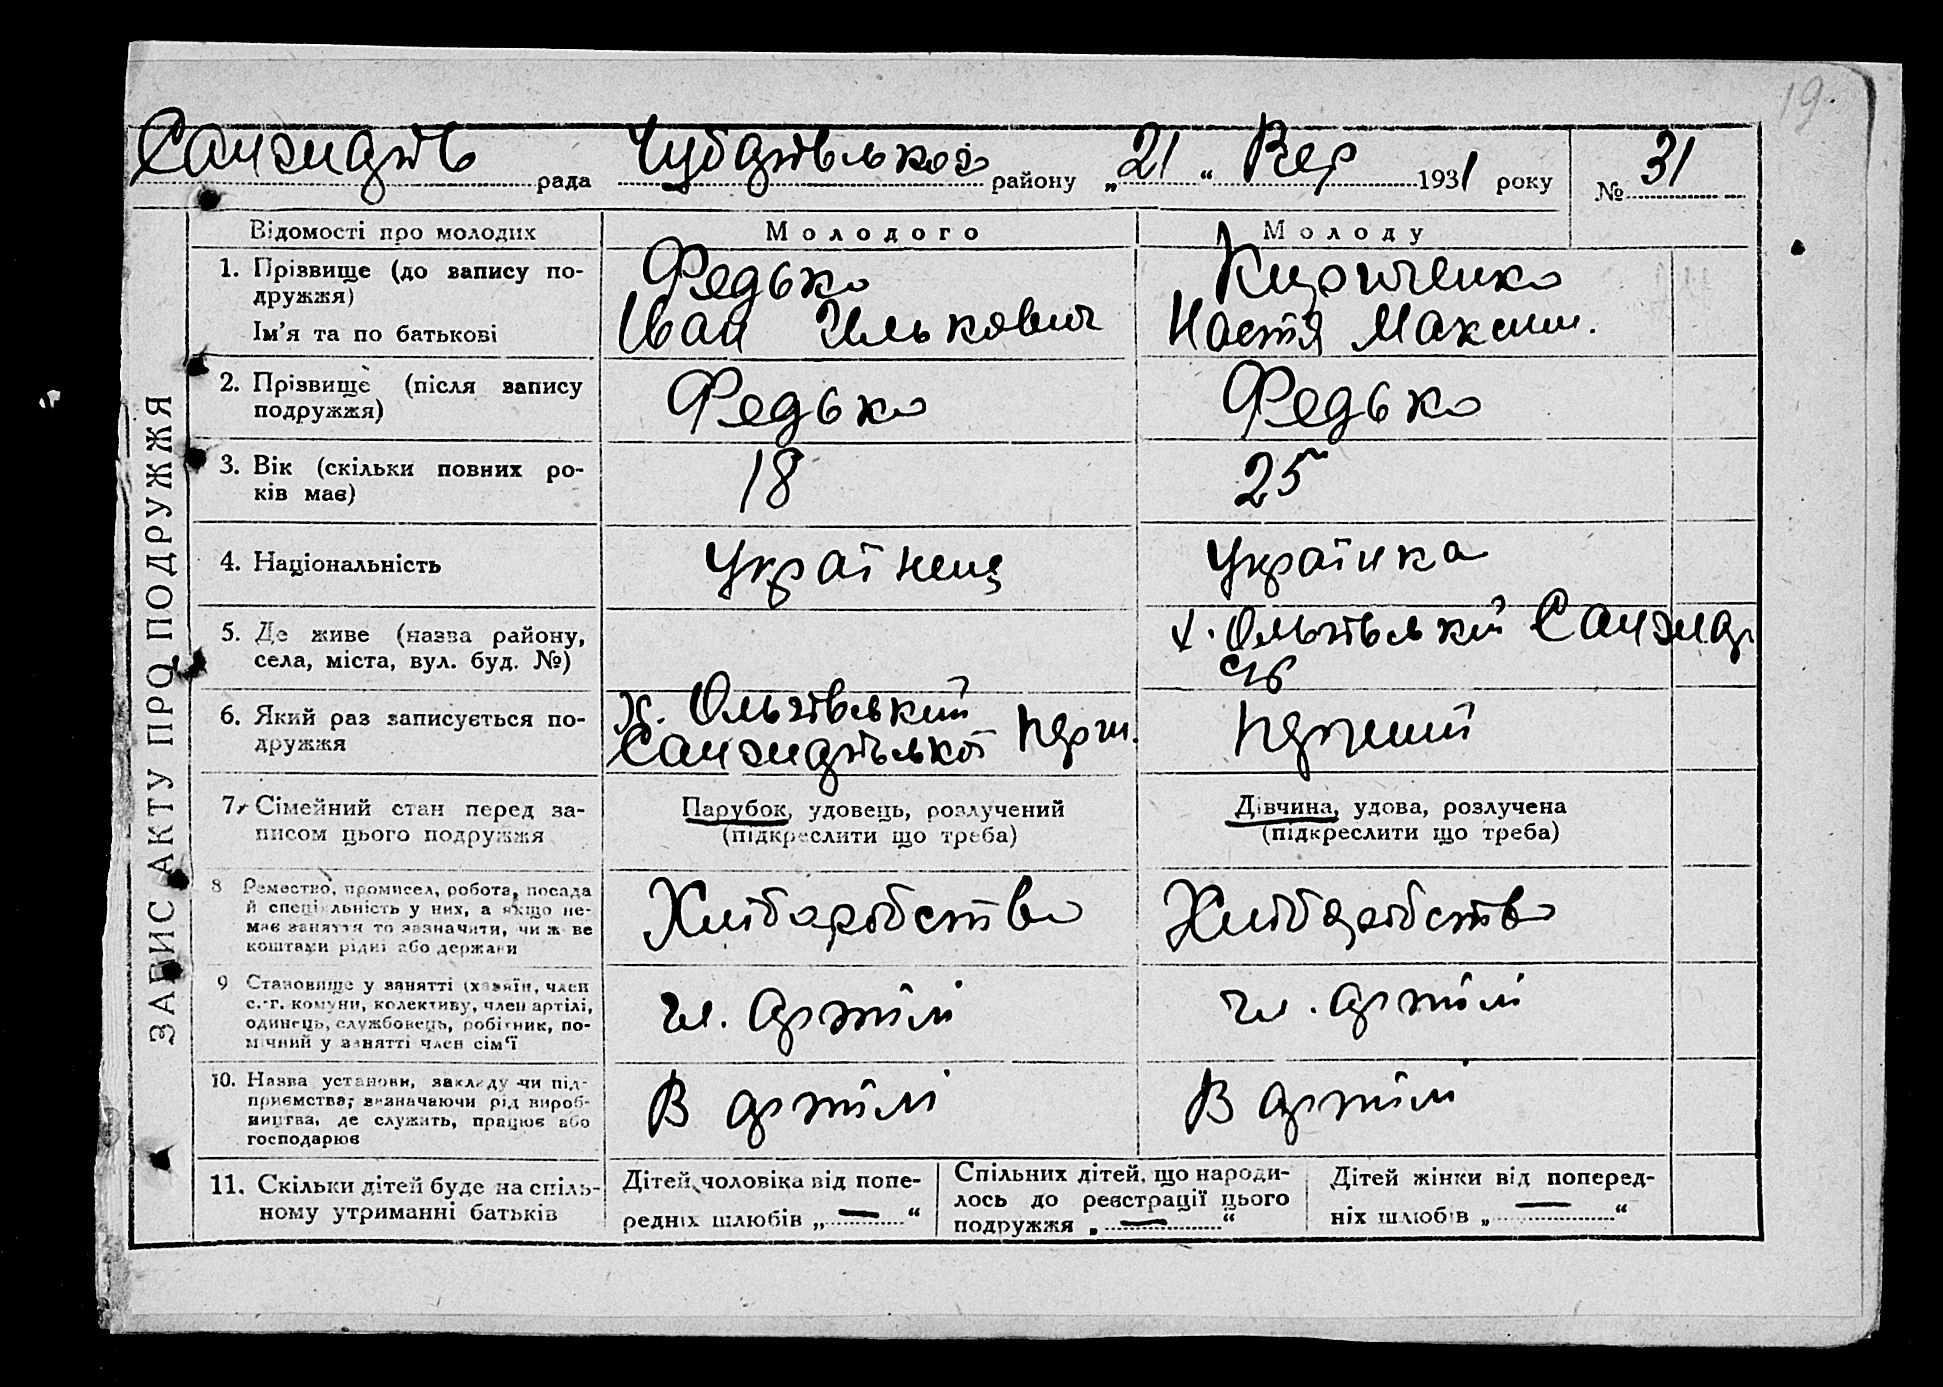 19.
рада Чубарівського району „21“ Вер 1931 року № 31
ЗАПИС АКТУ ПРО ПОДРУЖЖЯ
Відомості про молодих Молодого Молоду
1. Прізвище (до запису по-
дружжя)
Ім'я та по батькові
Федько
Іван Ількович
Кириченко
Настя Максим.
2. Прізвище (після запису
подружжя)
Федько
Федько
3. Вік (скільки повних ро-
ків має)
18
25
4. Національність
Українец
Українка
5. Де живе (назва району,
села, міста, вул. буд. №)
х. Ольгівський
6. Який раз записується по-
дружжя
х. Ольгівський
Перш.
Перший
7. Сімейний стан перед за-
писом цього подружжя
Парубок, удовець, розлучений
(підкреслити що треба)
Дівчина, удова, розлучена
(підкреслити що треба)
8 Ремество, промисел, робота, посада
й спеціяльність у них, а якщо не-
має заняття то зазначити, чи ж ве
коштами рідні або держави
Хліборобство
Хліборобство
9 Становище у занятті (хазяїн, член
с.-г. комуни, колективу, член артілі,
одинець, службовець, робітник, по-
мічний у занятті член сім'ї
чл. артілі
чл. артілі
10. Назва установи, закладу чи під-
приємства, визначаючи рід вироб-
ництва, де служить, працює або
господарює
В артілі
В артілі
11. Скільки дітей буде на спіль-
ному утриманні батьків
Дітей чоловіка від попе-
редніх шлюбів „—“
Спільних дітей, що народи-
лось до реєстрації цього
подружжя „—“
Дітей жінки від поперед-
ніх шлюбів „—“